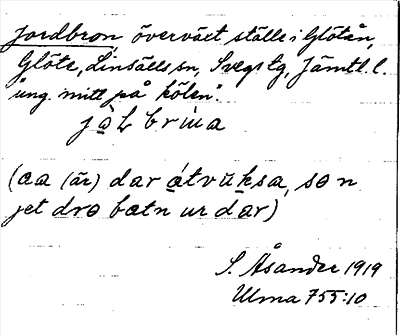 Jordbron, övervåxt ställe i Glötån,
Glöte, Linsälls sn, Svegs tg, Jämtl. l.
"ung. mitt på kölen".
jàL brùa
(æa (är) dar átvúksa, sən
jet drə bætn ur dar)
S. Åsander 1919
Ulma 755:10